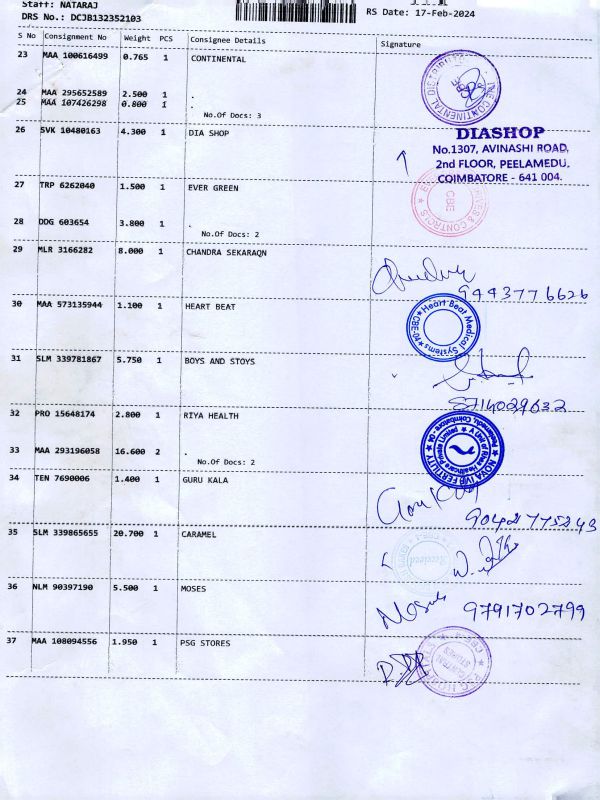 Staff: NATARAJ
DRS No.: DCJB132352103
RS Date: 17-Feb-2024
S No Consignment No Weight PCS Consignee Details Signature
23 MAA 100616499 0.765 1 CONTINENTAL
24 MAA 295652589 2.500 1 .
25 MAA 107426298 0.800 1 .
No.Of Docs: 3
26 SVK 10480163 4.300 1 DIA SHOP
DIASHOP
No.1307, AVINASHI ROAD,
2nd FLOOR, PEELAMEDU,
COIMBATORE - 641 004.
27 TRP 6262040 1.500 1 EVER GREEN
& CONTROLS
CBE
28 DDG 603654 3.800 1 .
No.Of Docs: 2
29 MLR 3166282 8.000 1 CHANDRA SEKARAQN
9443776626
30 MAA 573135944 1.100 1 HEART BEAT
Heart Beat Medical Systems
31 SLM 339781867 5.750 1 BOYS AND STOYS
32 PRO 15648174 2.800 1 RIYA HEALTH
NOVA IVF FERTILITY
33 MAA 293196058 16.600 2 .
No.Of Docs: 2
34 TEN 7690006 1.400 1 GURU KALA
35 SLM 339865655 20.700 1 CARAMEL
Received
36 NLM 90397190 5.500 1 MOSES
9791702799
37 MAA 108094556 1.950 1 PSG STORES